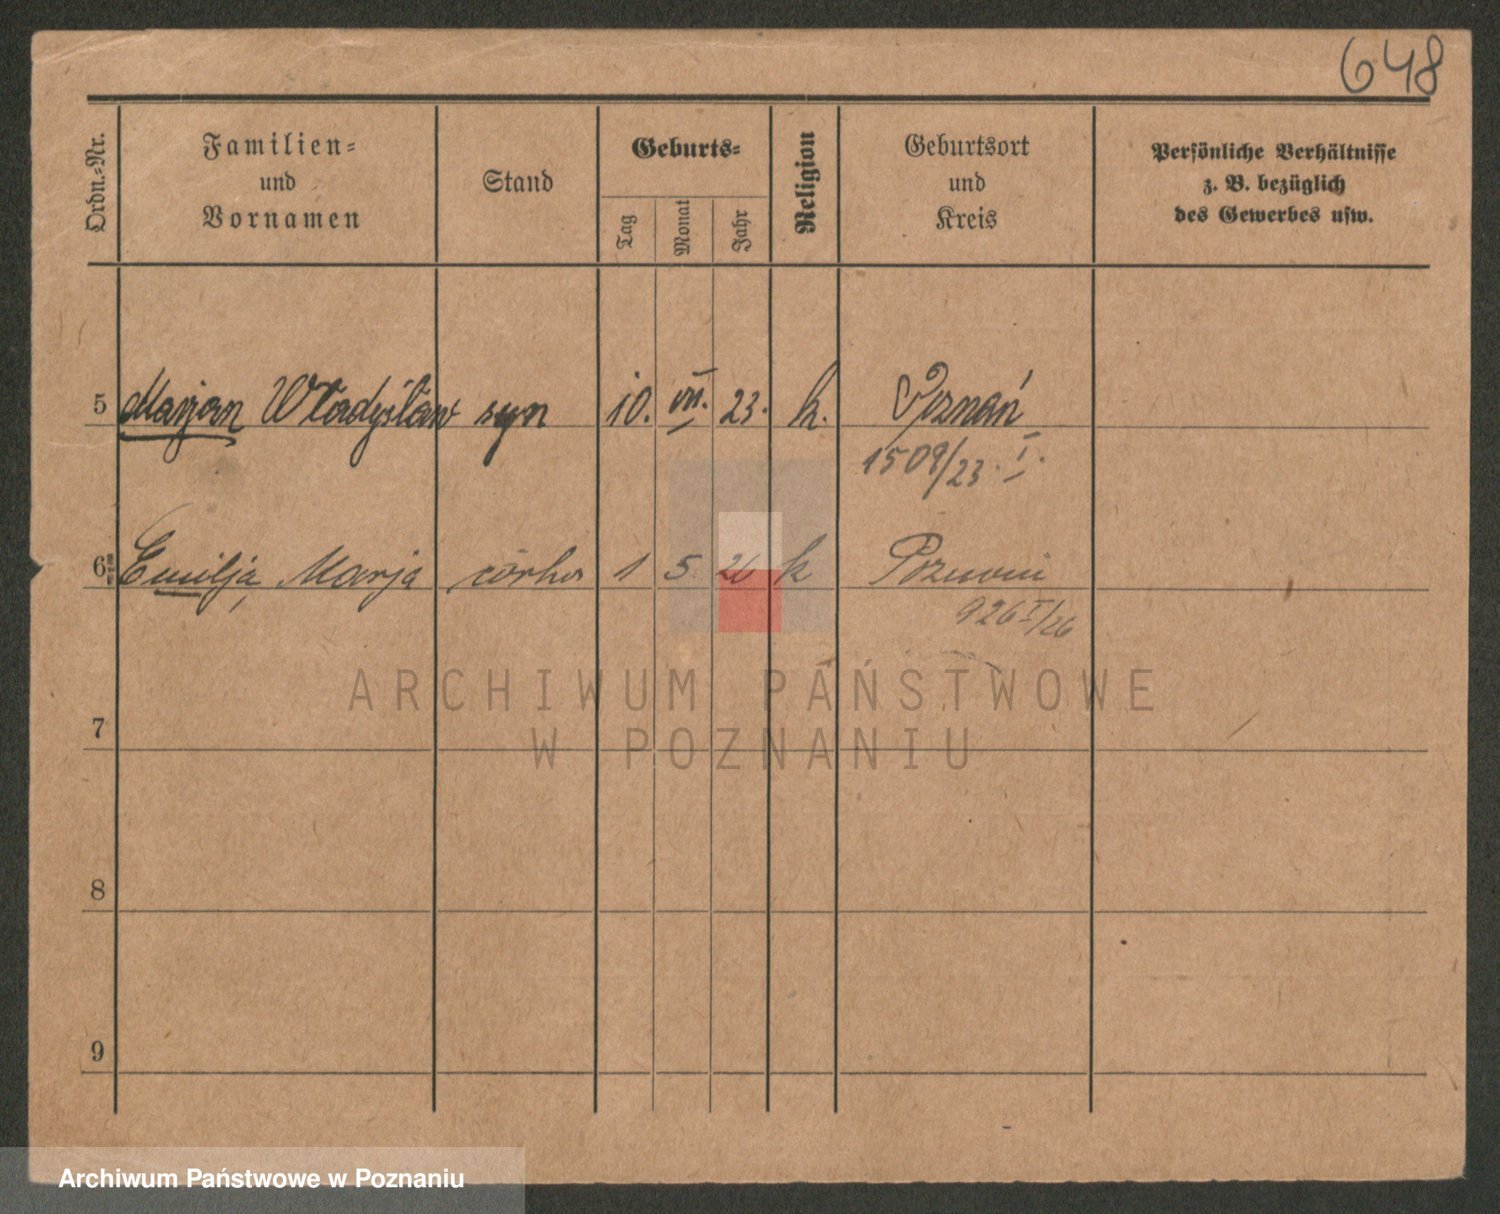 648
Ordn.-Nr.
Familien-
und
Vornamen
Stand
Geburts-
Tag
Monat
Jahr
Religion
Geburtsort
und
Kreis
Persönliche Verhältnisse
z. B. bezüglich
des Gewerbes usw.
5 Marjan Władysław syn 10. VII. 23. k. Poznań
1509/23. I.
6 Emilja Marja córka 1 5 26 k Poznań
926 I/26
ARCHIWUM PAŃSTWOWE
W POZNANIU
7
8
9
Archiwum Państwowe w Poznaniu